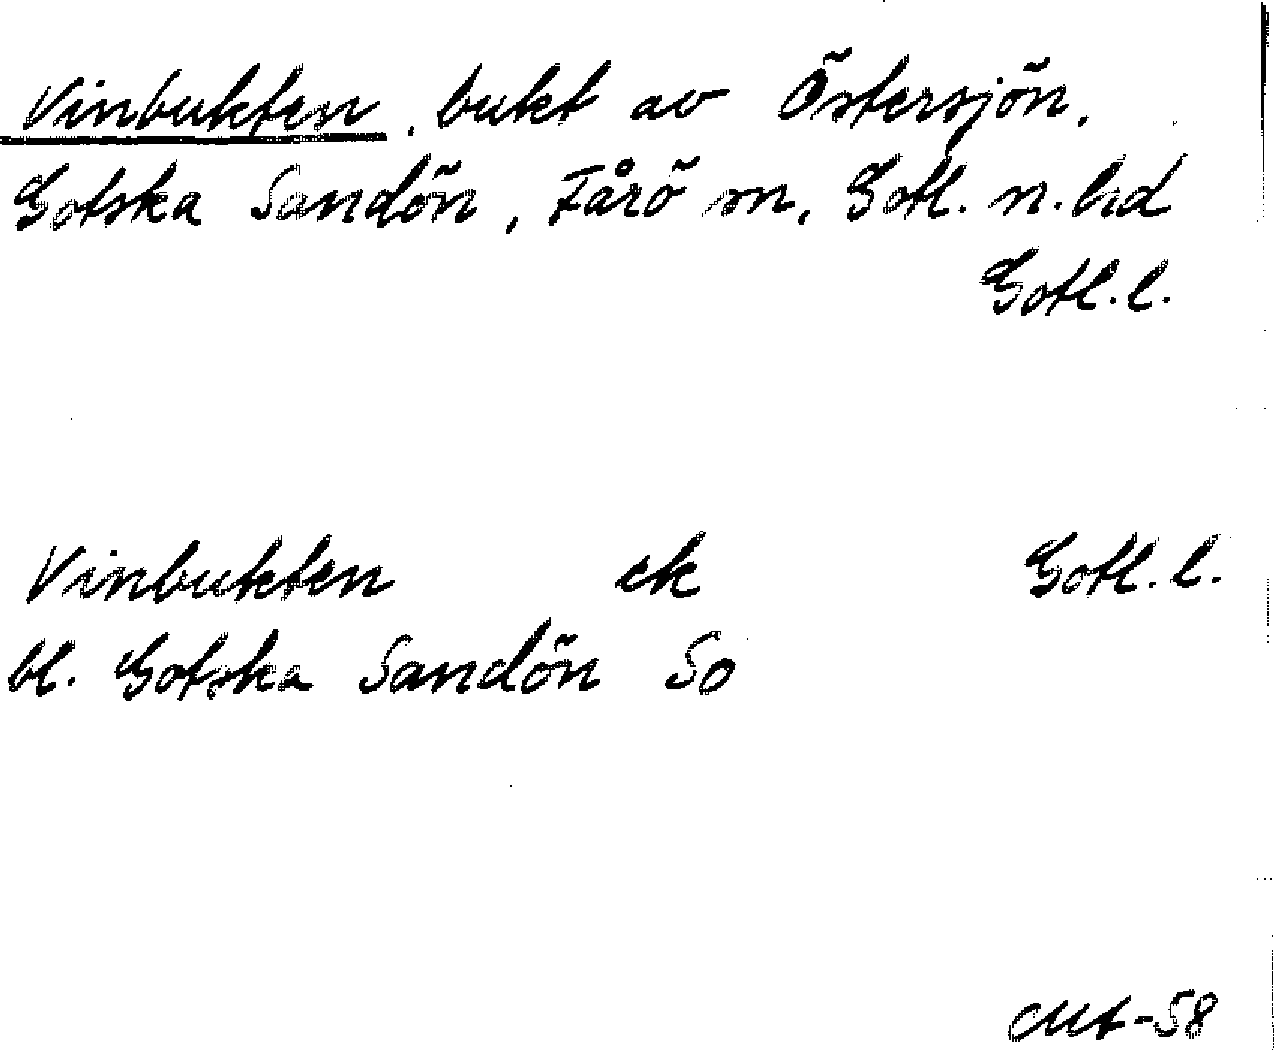 Vinbukten, bukt av Östersjön.
Gotska Sandön, Fårö sn, Gotl. n. hd
Gotl. l.
Vinbukten ek Gotl. l.
bl. Gotska Sandön So
-58